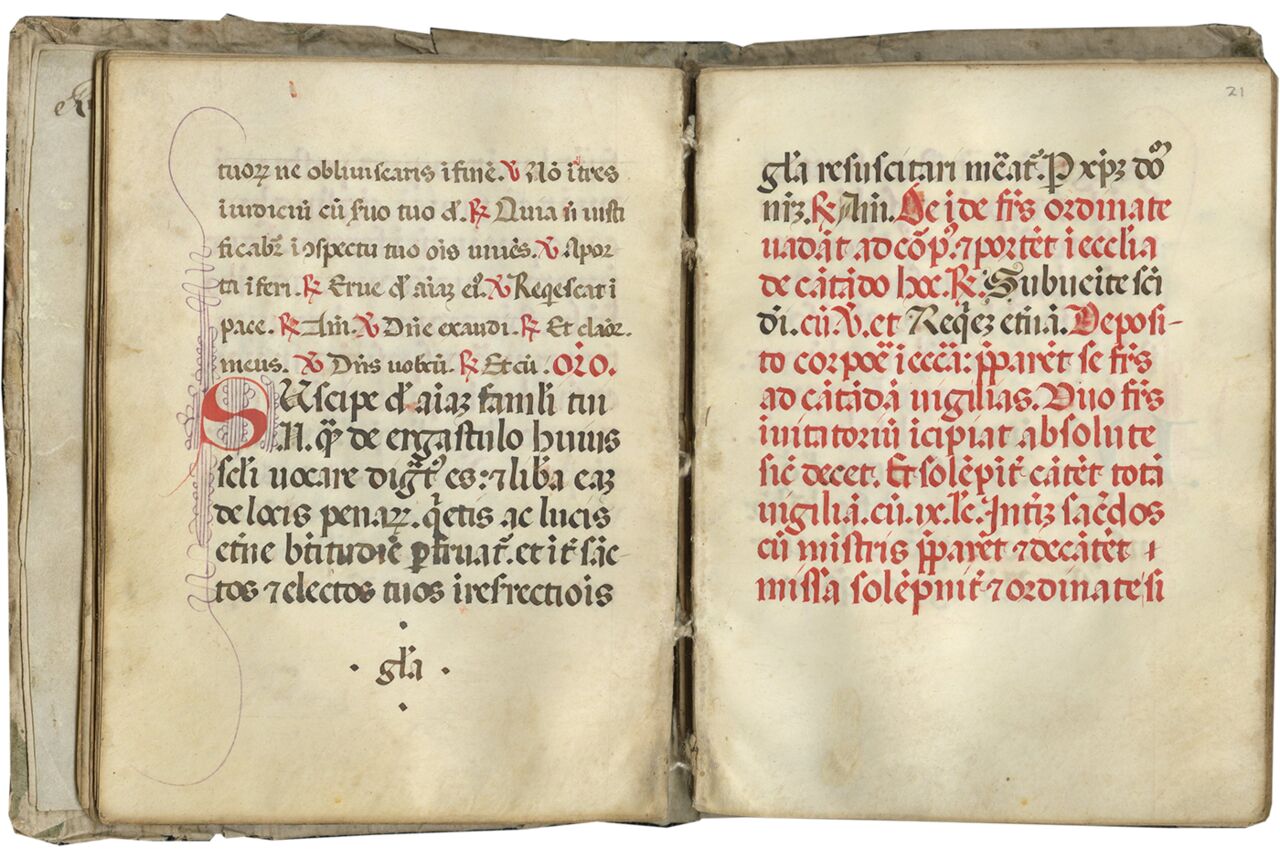 tuoꝝ ne obliuiscaris ĩ finẽ. ℣ Nõ ĩtres
iudiciũ cũ ſuo tuo d̃. ℟ Quia ñ iusti
ficabr̃ ĩ ꝯspectu tuo oĩs uiuẽs. ℣ Apor
ta ĩferi. ℟ Erue d̃ aĩaʒ eĩ. ℣ Reqẽscat ĩ
pace. ℟ Am̃. ℣ Dñe exaudi. ℟ Et clãor.
meus. ℣ Dñs uobcũ. ℟ Et cũ. OR̃O.
SUscipe d̃ aĩaʒ famlĩ tui
N. q̃ de ergastulo huius
sclĩ uocare dig̃t es: ⁊ lib̃a eaʒ
de locis penaꝝ. q̃etis ac lucis
etñe b̃titudiẽ ꝑfruat̃. et ĩt̃ sãc
tos ⁊ electos tuos ĩ resrectiõis
gl̃a
21
gl̃a resuscitari mẽat̃. P xp̃ʒ dõ
nũʒ. ℟ Am̃. De ĩde fr̃s ordinate
uadãt ad cõp̃. ⁊ portẽt ĩ ecclĩa
de cãtãdo hoc. ℟. Subueĩte scĩ
dĩ. cũ ℣. et Req̃eʒ etñã. Deposi-
to corpõe ĩ eccã: p̃parẽt se fr̃s
ad cãtãdã uigilias. Duo fr̃s
ĩuitatoriũ ĩcipiãt absolute
sic̃ decet. Et solẽpit̃ cãtẽt totã
uigiliã. cũ. ix. lc̃. Intĩʒ sac̃dos
cũ mistris p̃parẽt ⁊ decãtẽt ı
missã solẽpnit̃ ⁊ ordinate si